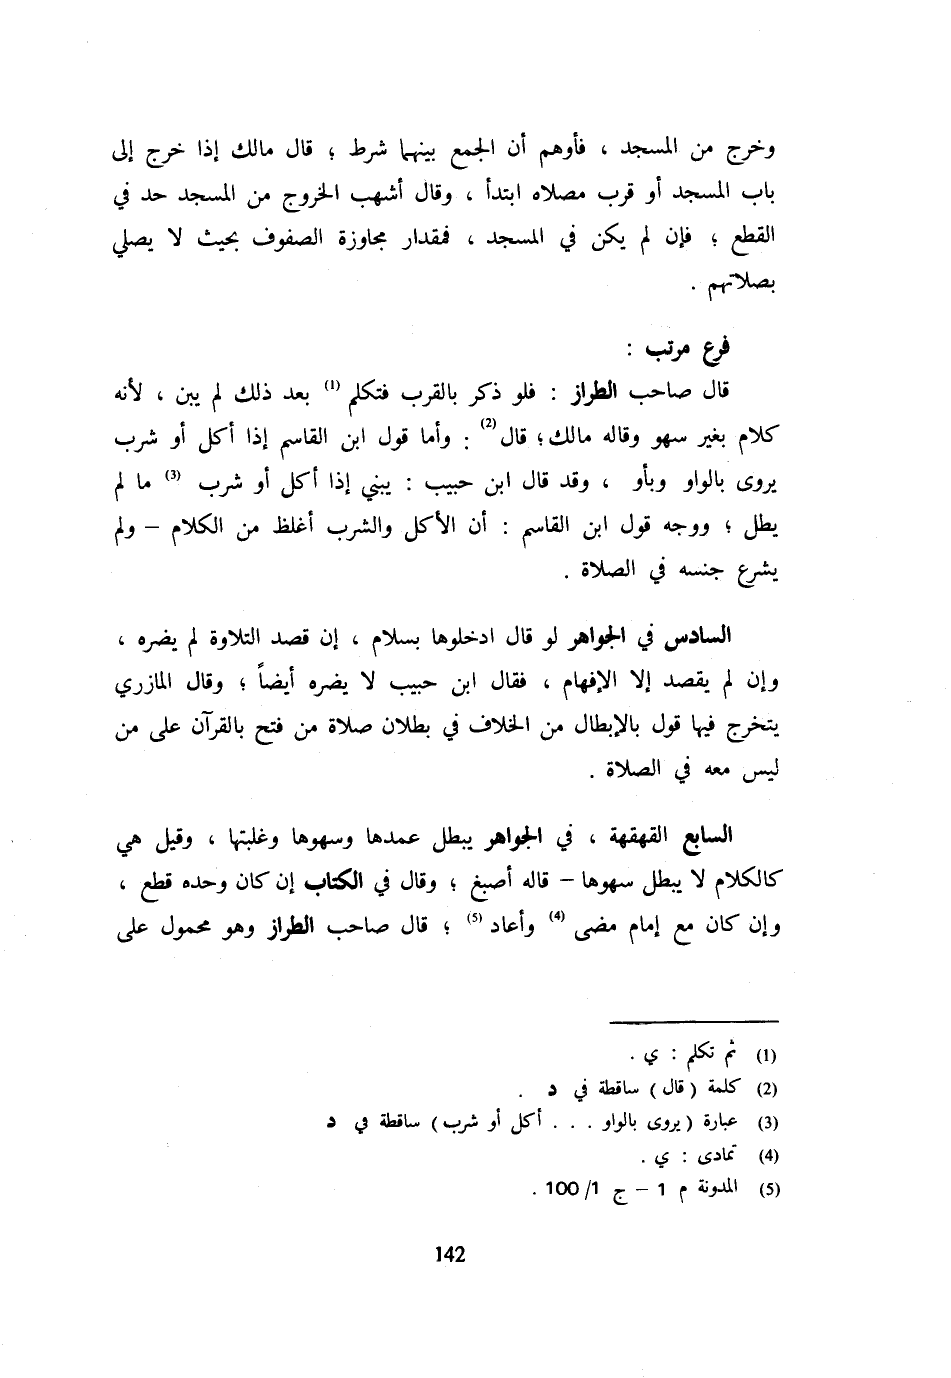 وخرج من المسجد ، فأوهم أن الجمع بينهما شرط ؛ قال مالك إذا خرج إلى
باب المسجد أو قرب مصلاه ابتدأ ، وقال أشهب الخروج من المسجد حد في
القطع ؛ فإن لم يكن في المسجد ، فمقدار مجاوزة الصفوف بحيث لا يصلي
بصلاتهم .
فرع مرتب :
قال صاحب الطراز : فلو ذكر بالقرب فتكلم (1) بعد ذلك لم يبن ، لأنه
كلام بغير سهو وقاله مالك؛ قال (2) : وأما قول ابن القاسم إذا أكل أو شرب
يروى بالواو وبأو ، وقد قال ابن حبيب : يبني إذا أكل أو شرب (3) ما لم
يطل ؛ ووجه قول ابن القاسم : أن الأكل والشرب أغلظ من الكلام – ولم
يشرع جنسه في الصلاة .
السادس في الجواهر لو قال ادخلوها بسلام ، إن قصد التلاوة لم يضره ،
وإن لم يقصد إلا الإفهام ، فقال ابن حبيب لا يضره أيضاً ؛ وقال المازري
يتخرج فيها قول بالإبطال من الخلاف في بطلان صلاة من فتح بالقرآن على من
ليس معه في الصلاة .
السابع القهقهة ، في الجواهر يبطل عمدها وسهوها وغلبتها ، وقيل هي
كالكلام لا يبطل سهوها – قاله أصبغ ؛ وقال في الكتاب إن كان وحده قطع ،
وإن كان مع إمام مضى (4) وأعاد (5) ؛ قال صاحب الطراز وهو محمول على
(1) ثم تكلم : ي .
(2) كلمة ( قال ) ساقطة في د .
(3) عبارة ( يروى بالواو . . . أكل أو شرب ) ساقطة في د
(4) تمادى : ي .
(5) المدونة م 1 – ج 1/ 100 .
142